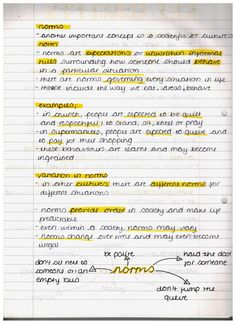 norms
- another important concept is a society's or culture's
norm
- norms are expectations or unwritten informal
rules surrounding how someone should behave
in a particular situation
- there are norms governing every situation in life
- these include the way we eat, dress, behave
examples;
- in church, people are expected to be quiet
and respectful, to stand, sit, kneel or pray
- in supermarkets, people are expected to queue and
to pay for their shopping
- these behaviours are learnt and may become
ingrained
variation in norms
- in other cultures, there are different norms for
different situations
- norms provide order in society and make life
predictable
- even within a society, norms may vary
- norms change over time and may even become
illegal
be polite
hold the door
for someone
don't sit next to
someone on an
empty bus
norms
don't jump the
queue